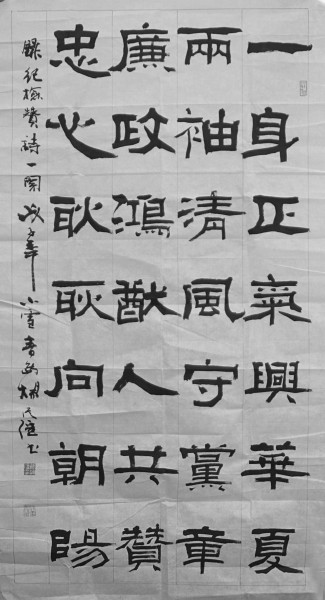 一身正氣興華夏
兩袖清風守黨章
廉政鴻猷人共贊
忠心耿耿向朝陽
錄紀檢贊詩一闋 小雪 書